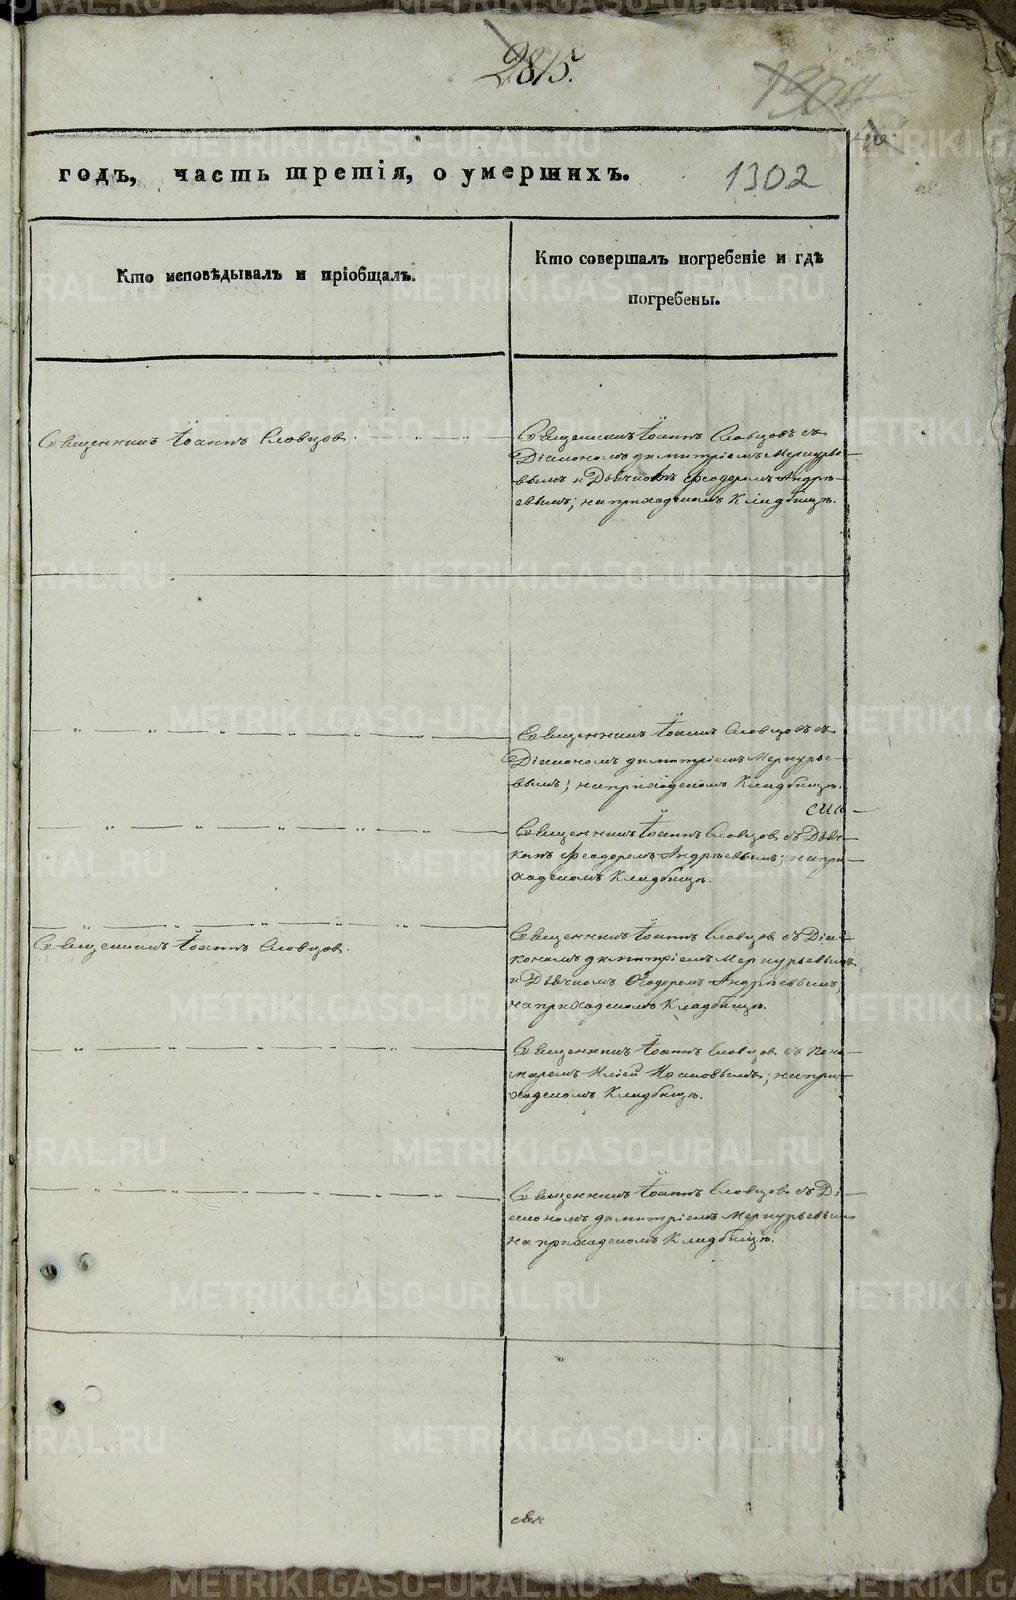 2815.
1304
1302
годъ, часть третія, о умершихъ.
Кто исповѣдывалъ и пріобщалъ.
Кто совершалъ погребеніе и гдѣ
погребены.
Священникъ Іоаннъ Словцов.
Священникъ Іоаннъ Словцовъ съ
Діакономъ Димитріемъ Меркурье-
вымъ и Дьячкомъ Феодоромъ Андрѣ-
евымъ; на приходскомъ Кладбищѣ.
Священникъ Іоаннъ Словцовъ съ
Діакономъ Димитріемъ Меркурье-
вымъ; на приходскомъ Кладбищѣ.
Священникъ Іоаннъ Словцов съ Дьяч-
комъ Феодоромъ Андрѣевымъ; на при-
ходскомъ Кладбищѣ.
Священникъ Іоаннъ Словцов.
Священникъ Іоаннъ Словцов съ Діа-
кономъ Димитріемъ Меркурьевымъ
и Дьячкомъ Феодоромъ Андрѣевымъ;
на приходскомъ Кладбищѣ.
Священникъ Іоаннъ Словцов съ Поно-
маремъ Иліей; на при-
ходскомъ Кладбищѣ.
Священникъ Іоаннъ Словцов съ Ді-
акономъ Димитріемъ Меркурьевым
на приходскомъ Кладбищѣ.
METRIKI.GASO-URAL.RU